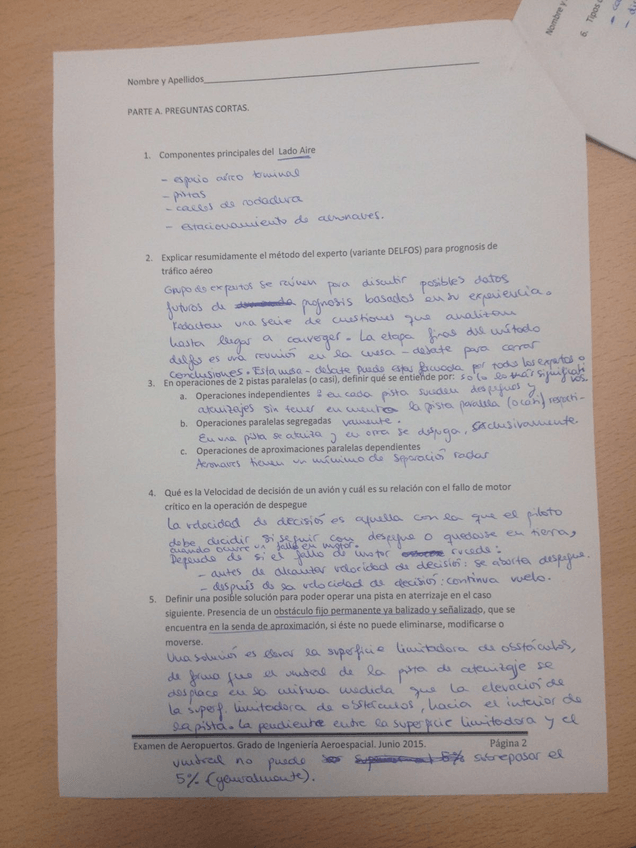 Nombre y Apellidos
PARTE A. PREGUNTAS CORTAS.
1. Componentes principales del Lado Aire
- espacio aéreo terminal
- pistas
- calles de rodadura
- estacionamiento de aeronaves.
2. Explicar resumidamente el método del experto (variante DELFOS) para prognosis de
tráfico aéreo
Grupo de expertos se reúnen para discutir posibles datos
futuros de prognosis basados en su experiencia.
Redactan una serie de cuestiones que analizan
hasta llegar a converger. La etapa final del método
delfos es una reunión en la mesa-debate para cerrar
conclusiones. Esta mesa-debate puede estar formada por todos los expertos o
sólo los más significativos.
3. En operaciones de 2 pistas paralelas (o casi), definir qué se entiende por:
a. Operaciones independientes : en cada pista suceden despegues y
aterrizajes sin tener en cuenta la pista paralela (o casi) respecti-
vamente.
b. Operaciones paralelas segregadas
En una pista se aterriza y en otra se despega, exclusivamente.
c. Operaciones de aproximaciones paralelas dependientes
Aeronaves tienen un mínimo de separación radar
4. Qué es la Velocidad de decisión de un avión y cuál es su relación con el fallo de motor
crítico en la operación de despegue
La velocidad de decisión es aquella con la que el piloto
debe decidir si seguir con despegue o quedarse en tierra,
cuando ocurre un fallo en motor.
Depende de si el fallo de motor sucede:
- antes de alcanzar velocidad de decisión: se aborta despegue.
- después de la velocidad de decisión: continua vuelo.
5. Definir una posible solución para poder operar una pista en aterrizaje en el caso
siguiente. Presencia de un obstáculo fijo permanente ya balizado y señalizado, que se
encuentra en la senda de aproximación, si éste no puede eliminarse, modificarse o
moverse.
Una solución es elevar la superficie limitadora de obstáculos,
de forma que el umbral de la pista de aterrizaje se
desplace en la misma medida que la elevación de
la superf. limitadora de obstáculos, hacia el interior de
la pista. La pendiente entre la superficie limitadora y el
Examen de Aeropuertos. Grado de Ingeniería Aeroespacial. Junio 2015. Página 2
umbral no puede sobrepasar el
5% (generalmente).
Nombre y
6. Tipos